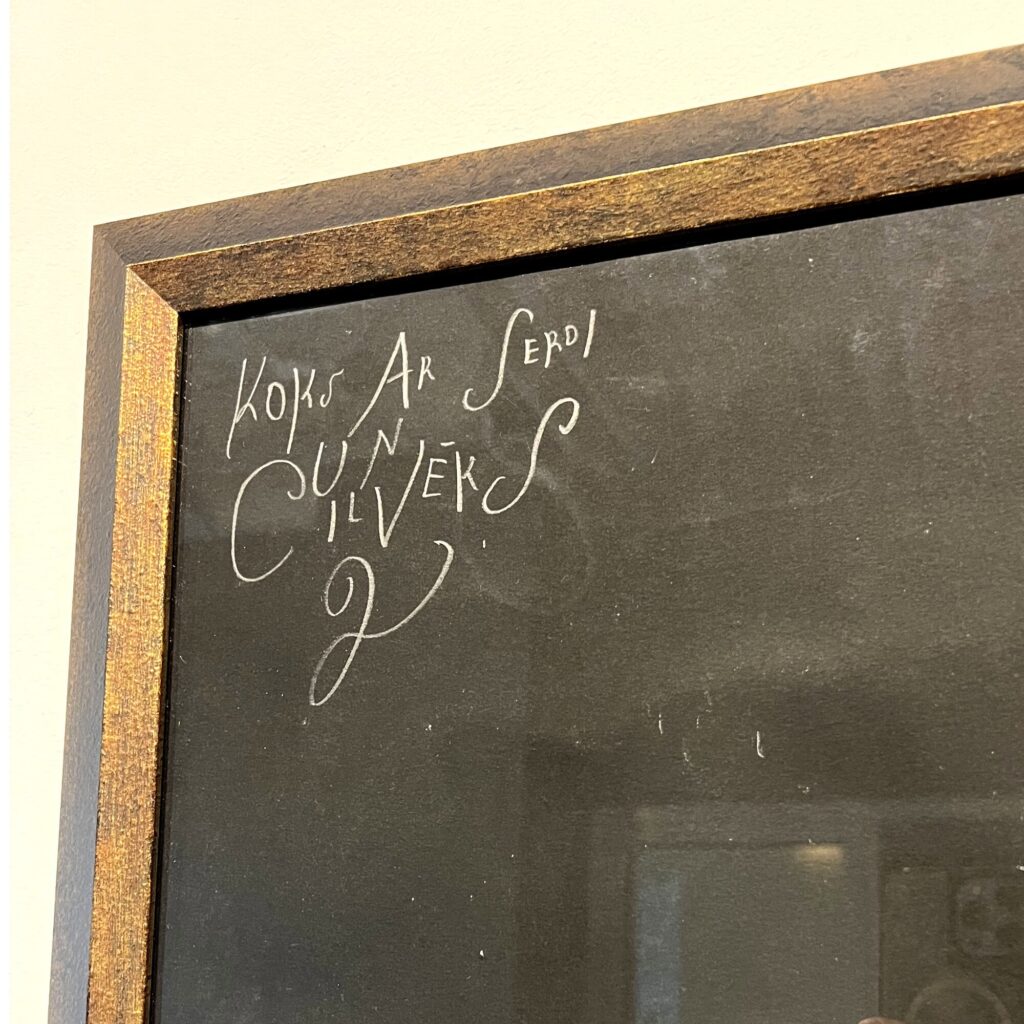 KOKS AR SERDI
UN
CILVĒKS
2